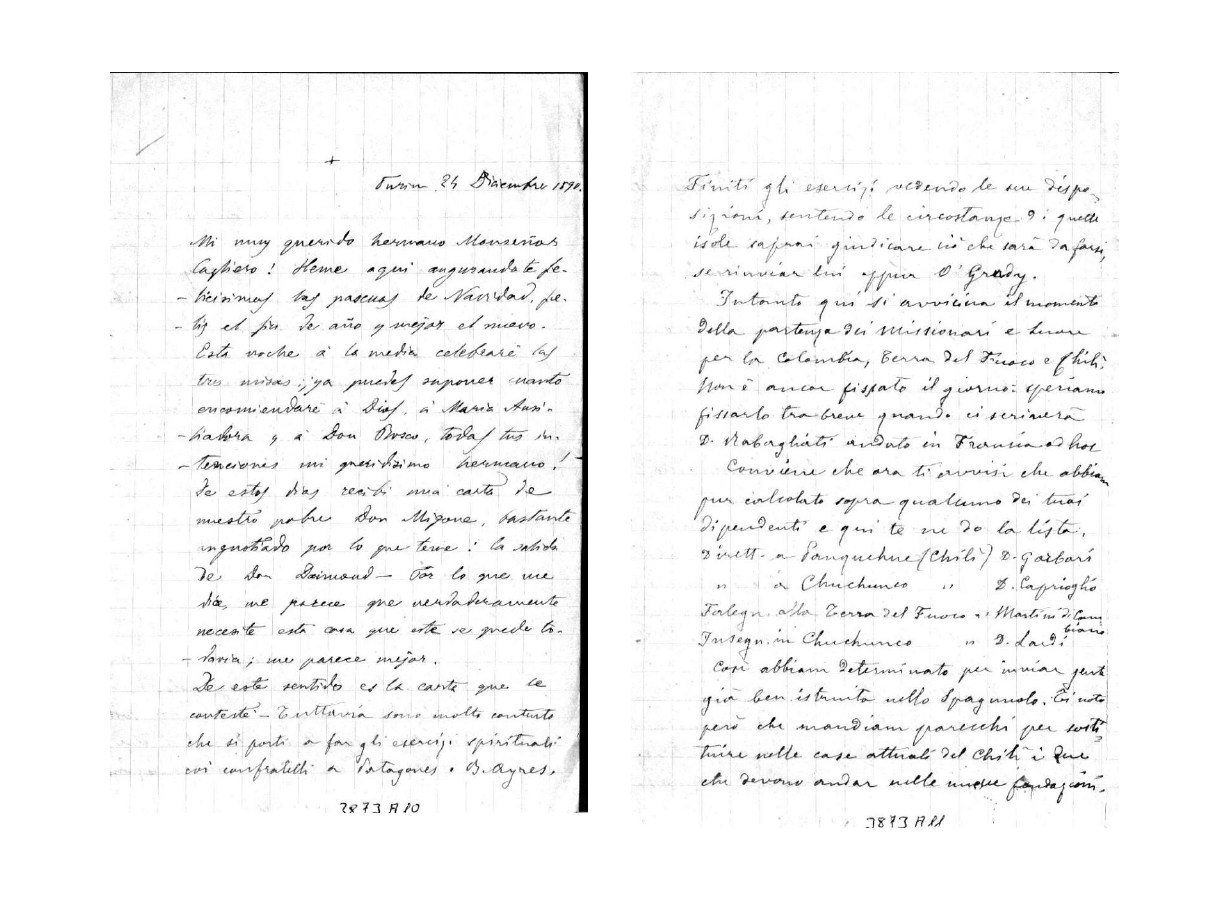 +
Turin 24 Diciembre 1890.
Mi muy querido hermano Monseñor
Cagliero! Heme aqui augurandote fe-
-licisimas las pascuas de Navidad, fe-
-liz el fin de año y mejor el nuevo.
Esta noche à la media celebrarè las
tres misas; ya puedes suponer cuanto
encomendarè à Dios, à Maria Auxi-
-liadora y à Don Bosco, todas tus in-
-tenciones mi queridisimo hermano!
De estos dias recibi una carta de
nuestro pobre Don Migone, bastante
angustiado por lo que teme: la salida
de Don Daimond — Por lo que me
dice, me parece que verdaderamente
necesite esta casa que este se quede to-
-davia; me parece mejor.
De este sentido es la carta que le
contestè — Tuttavia sono molto contento
che si porti a far gli esercizi spirituali
coi confratelli a Patagones o B. Ayres.
3873 A 10
Finiti gli esercizi vedendo le sue dispo-
sizioni, sentendo le circostanze di quelle
isole saprai giudicare ciò che sarà da farsi,
se rinviar lui oppur O'Grady.
Intanto qui si avvicina il momento
della partenza dei Missionari e Suore
per la Colombia, Terra del Fuoco e Chilì.
Non è ancor fissato il giorno: speriamo
fissarlo tra breve quando ci scriverà
D. Rabagliati andato in Francia ad hoc
Conviene che ora ti avvisi che abbiam
pur calcolato sopra qualcuno dei tuoi
dipendenti e qui te ne do la lista.
Dirett. a Panquehue (Chilì) D. Garbari
" à Chuchunco " D. Caprioglio
Falegn. alla Terra del Fuoco " Martini di Cam
biano
Insegn. in Chuchunco " D. Lardi
Così abbiam determinato per inviar gente
già ben istruita nello Spagnuolo. Ti noto
però che mandiam parecchi per sosti-
tuire nelle case attuali del Chilì i due
che devono andar nelle nuove fondazioni.
3873 A 11